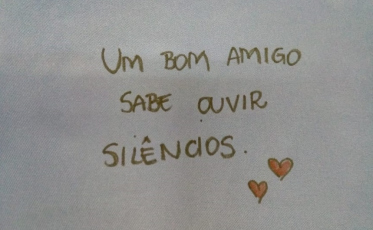 UM BOM AMIGO
SABE OUVIR
SILÊNCIOS.